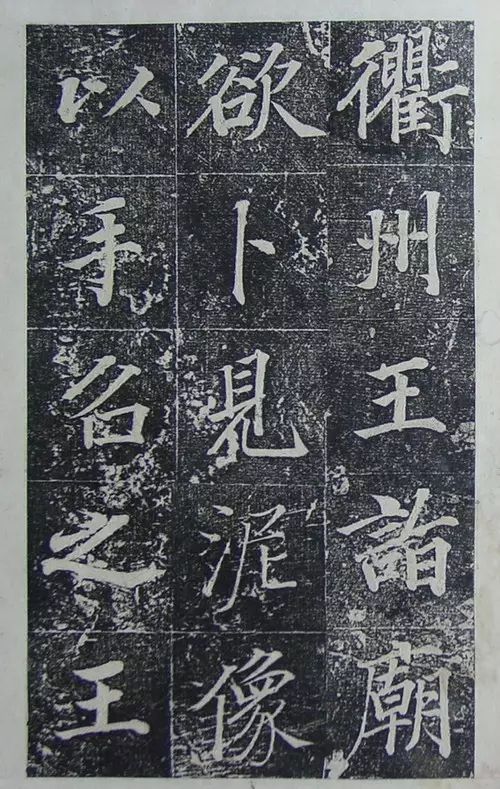 衢州王詣廟
欲卜見泥像
以手名之王